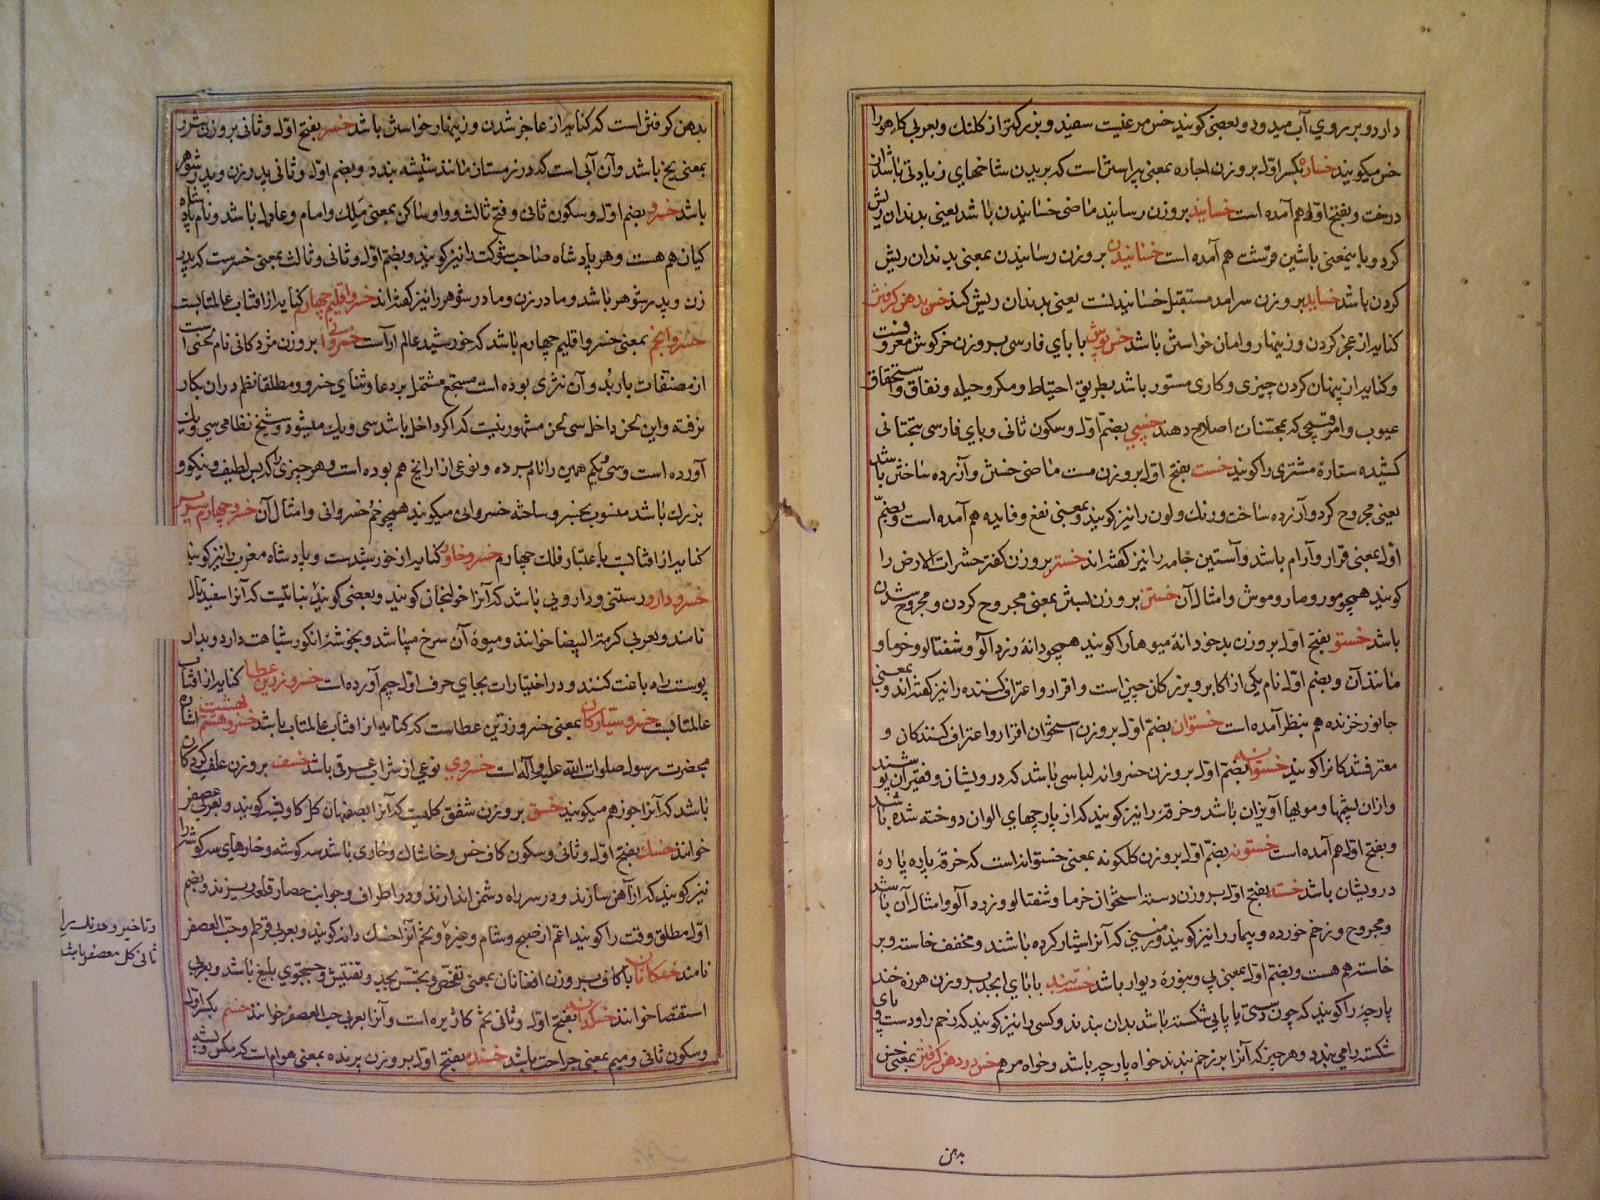 دارد و بر روی آب میدود و بعضی کویند خس مرغیست سفید و بزرکتر از کلنک و بعربی کاه هوا را
خس میکویند خساره بکسر اول بر وزن اجاره بمعنی پیراستن است که بریدن شاخهای زیادتی باشد از
درخت و بفتح اول هم آمده است خسایند بر وزن رسایند ماضی خسایندن باشد یعنی بدندان ریش
کرد و باینمعنی باشین قرشت هم آمده است خسانیدن بر وزن رسانیدن بمعنی بدندان ریش
کردن باشد خساید بر وزن سرامد مستقبل خسانیدنست یعنی بدندان ریش کند خس بدهن کرفتن
کنایه از عجز کردن و زینهار و امان خواستن باشد خس پوش با بای فارسی بر وزن خرکوش معروفست
و کنایه از پنهان کردن چیزی و کاری مستور باشد بطریق احتیاط و مکر و حیله و نفاق و
عیوب و امر قبیحی که بمحسنان اصلاح دهند خسپی بضم اول و سکون ثانی و بای فارسی بتحتانی
کشیده ستارهٔ مشتری را کویند خست بفتح اول بر وزن مست ماضی خستن و آزرده ساختن باشد
یعنی مجروح کرد و آزرده ساخت و رنک و لون را نیز کویند و بمعنی نفع و فایده هم آمده است و بضم
اول بمعنی قرار و آرام باشد و آستین جامه را نیز کفته‌اند خستر بر وزن کفتر حشرات الارض را
کویند همچو مور و مار و موش و امثال آن خستن بر وزن بستن بمعنی مجروح کردن و مجروح شدن
باشد خستو بفتح اول بر وزن بدخو دانهٔ میوها را کویند همچو دانهٔ زردآلو و شفتالو و خرما و
مانند آن و بضم اول نام یکی از اکابر و بزرکان چین است و اقرار و اعتراف کننده را نیز کفته‌اند و بمعنی
جانور خزنده هم بنظر آمده است خستوان بضم اول بر وزن استخوان اقرار و اعتراف کنندکان و
معترفشدکانرا کویند خستوانه بضم اول بر وزن خسروانه لباسی باشد که درویشان و فقیران پوشند
و ازان پشمها و مویها آویزان باشد و خرقه را نیز کویند که از پارچهای الوان دوخته شده باشد
و بفتح اول هم آمده است خستونه بضم اول بر وزن کلکونه بمعنی خستوانه است که خرقهٔ پاره پارهٔ
درویشان باشد خسته بفتح اول بر وزن دسته استخوان خرما و شفتالو و زردآلو و امثال آن باشد
و مجروح و زخم خورده و بیمار را نیز کویند و زمینی که آنرا شیار کرده باشند و مخفف خاسته و بر
خاسته هم هست و بضم اول بمعنی پی و بنوره دیوار باشد خسته بند با بای ابجد بر وزن هرزه خند
پارچهٔ را کویند که چون دستی یا پایی شکسته باشد بدان بندند و کسی را نیز کویند که زخم را و دست و پای
شکسته را می بندد و هر چیز که آنرا بر زخم بندند خواه پارچه باشد و خواه مرهم خس در دهن کرفتن بمعنی خس
بدهن
بدهن کرفتن است که کنایه از عاجز شدن و زینهار خواستن باشد خسر بفتح اول و ثانی بر وزن شرر
بمعنی یخ باشد و آن آبی است که در زمستان مانند شیشه بندد و بضم اول و ثانی پدر زن و پدر شوهر
باشد خسرو بضم اول و سکون ثانی و فتح ثالث و واو ساکن بمعنی ملک و امام و عادل باشد و نام پادشاه
کیان هم هست و هر پادشاه صاحب شوکت را نیز کویند و بضم اول و ثانی و ثالث بمعنی خسر است که پدر
زن و پدر شوهر باشد و مادر زن و مادر شوهر را نیز کفته‌اند خسرو اقلیم چهارم کنایه از آفتاب عالمتابست
خسرو انجم بمعنی خسرو اقلیم چهارم باشد که خورشید عالم آراست خسروانی بر وزن مژدکانی نام لحنی است
از مصنفات باربد و آن نثری بوده است مسجع مشتمل بر دعا و ثنای خسرو و مطلقا نظم دران بکار
نرفته و این لحن داخل سی لحن مشهور نیست که اکر داخل باشد سی و یک میشود و شیخ نظامی سی و یک
آورده است و سی و یکم همین را نام برده و نوعی از زر رایج هم بوده است و هر چیزی را که بس لطیف و نیکو و
بزرک باشد منسوب بخسرو ساخته خسروانی میکویند همچو خم خسروانی و امثال آن خسرو چهارم سریر
کنایه از آفتابست باعتبار فلک چهارم خسرو خاور کنایه از خورشید است و پادشاه مغرب را نیز کویند
خسرو دارو رستنی و داروئی باشد که آنرا خولنجان کویند و بعضی کویند نباتیست که آنرا
نامند و بعربی کرمة البیضا خوانند و میوهٔ آن سرخ میباشد و بخوشهٔ انکور شباهت دارد و بدان
پوست را دباغت کنند و در اختیارات بجای حرف اول جیم آورده است خسرو زرین عطا کنایه از آفتاب
عالمتابست خسرو سیارکان بمعنی خسرو زرین عطاست که کنایه از آفتاب عالمتاب باشد خسرو هشتم بهشت اشاره
بحضرت رسول صلوات الله علیه و آله است خسروی نوعی از شراب عرقی باشد خسف بر وزن علف کردکان
باشد که آنرا جوز هم میکویند خسق بر وزن شفق کلیست که آنرا بصفهان کل کاویشه کویند و بعربی عصفر
خوانند خسک بفتح اول و ثانی و سکون کاف خس و خاشاک و خاری باشد سه کوشه و خارهای سه کوشه را
نیز کویند که از آهن سازند و در سر راه دشمن اندازند و در اطراف و جوانب حصار قلعه ریزند و بضم
اول مطلق وقت را کویند اعم از صبح و شام و غیره و تخم آنرا خسک دانه کویند و بعربی قرطم و حب العصفر
نامند خسکانان با کاف بر وزن افغانان بمعنی تفحص و تجسس بجد و تفتیش و جستجوی بلیغ باشد و بعربی
استقصا خوانند خسکدانه بفتح اول و ثانی تخم کاژیره است و آنرا بعربی حب العصفر خوانند خسم بکسر اول
و سکون ثانی و میم بمعنی جراحت باشد خسنده بفتح اول بر وزن پرنده بمعنی هوام است که مکس و پشه
ثانی کل معصفر باشد